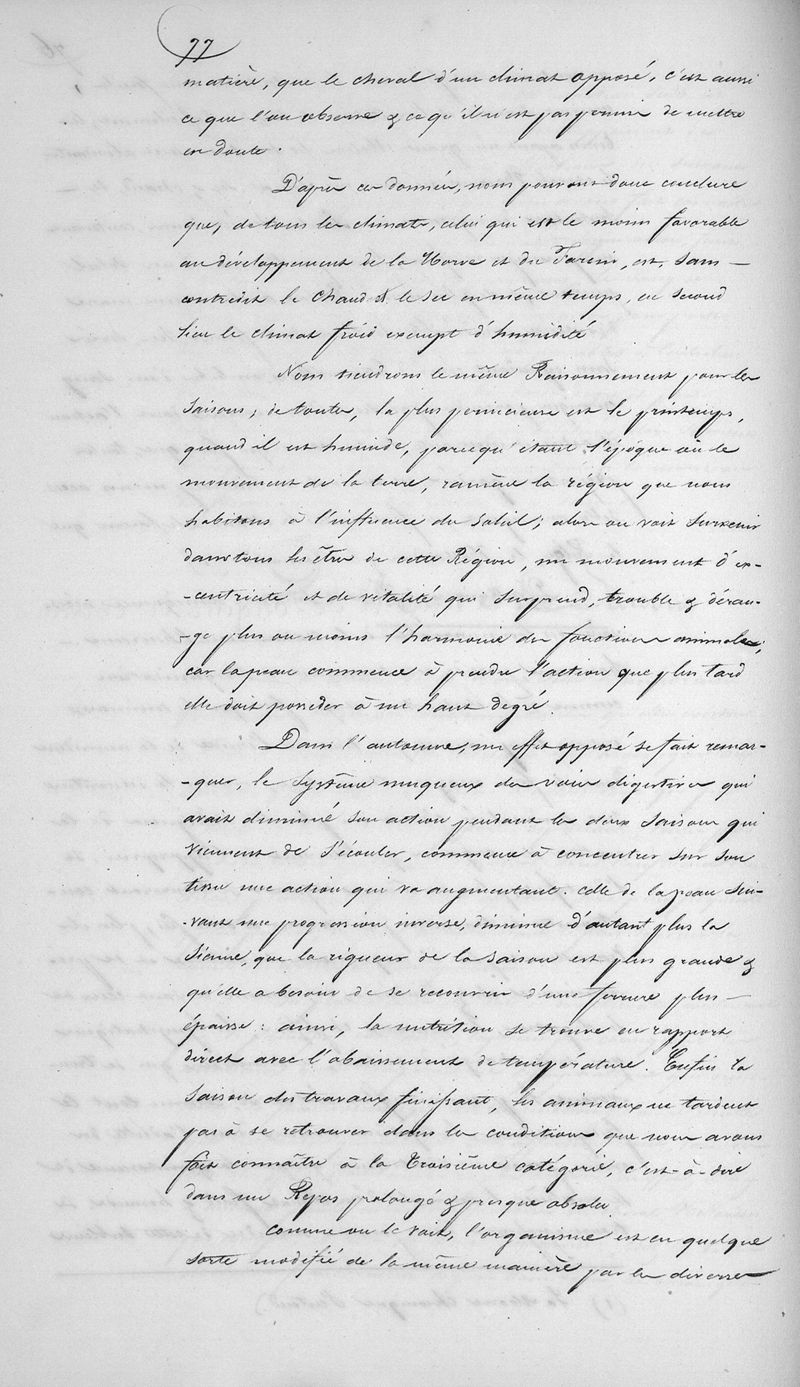 77
matière, que le cheval d'un climat opposé, c'est aussi
ce que l'on observe & ce qu'il n'est pas permis de mettre
en doute.
D'après ces données, nous pouvons donc conclure
que, de tous les climats, celui qui est le moins favorable
au développement de la Morve et du Farcin, est, sans —
contredit le chaud & le sec en même temps, en second
lieu le climat froid exempt d'humidité
Nous tiendrons le même Raisonnement pour les
saisons, de toutes, la plus pernicieuse est le printemps,
quand il est humide, parcequ'étant l'époque où le
mouvement de la terre, ramène la région que nous
habitons à l'influence du soleil; alors on voit survenir
dans tous les êtres de cette Région, un mouvement d'ex-
-centricité et de vitalité qui surprend, trouble & déran-
-ge plus ou moins l'harmonie des fonctions animales;
car la peau commence à prendre l'action que plus tard
elle doit posséder à un haut degré.
Dans l'automne, un effet opposé se fait remar-
-quer, le système muqueux des voies digestives qui
avait diminué son action pendant les deux saisons qui
viennent de s'écouler, commence à concentrer sur son
tissu une action qui va augmentant. celle de la peau sui-
-vant une progression inverse, diminue d'autant plus la
sienne, que la rigueur de la saison est plus grande &
qu'elle a besoin de se recouvrir d'une fourrure plus —
épaisse: ainsi, la nutrition se trouve en rapport
direct avec l'abaissement de température. Enfin la
saison des travaux finissant, les animaux ne tardent
pas à se retrouver dans les conditions que nous avons
fait connaître à la troisième catégorie, c'est-à-dire
dans un Repos prolongé & presque absolu.
comme on le voit, l'organisme est en quelque
sorte modifié de la même manière par les diverses